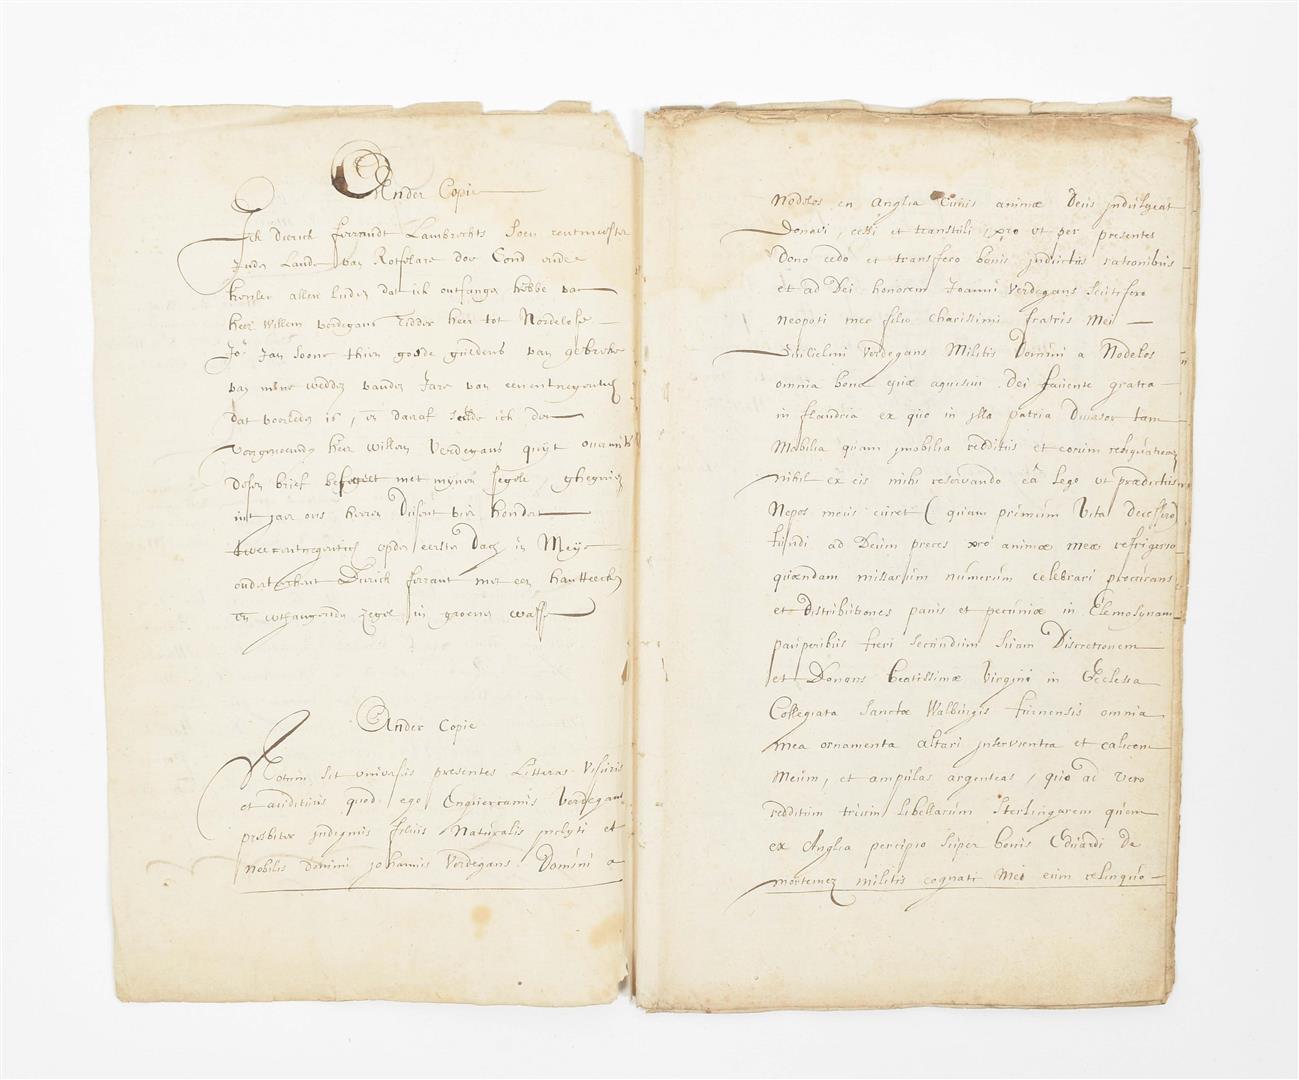 Ander Copie
Ick Dierick Ferrandt Lambrechts Soen rentmeester
Inden Lande van Rotselare doe Cond ende
kenlic allen luden dat ick ontfangen hebbe van
heer Willem Verdegans Ridder heer tot Nordelose
Jor Jan Soone thien goede guldens van gebreke
van mijne wedden vanden Jare van eenentnegentich
dat voorleden is, en daraf schelde ick den
voorgenoemden heer Willem Verdegans quijt overmits
desen brief besegelt met mynen segele, ghegeven
int jaer ons heeren Duisent vier hondert
tweeentnegentich opden eersten Dach in Meye
ondertekent Dierick Ferrant met een hantteecken
en wthangenden zegel in groenen wasse
Ander Copie
Notum sit universis presentes Litteras Visuris
et audituris quod ego Enguerramus Verdegans
presbiter indignus filius Naturalis inclyti et
nobilis domini Johannis Verdegans Domini a
Nodelos en Anglia cuius animæ Deus indulgeat
Donavi, cessi et transtuli, pro ut per presentes
Dono cedo et transfero bonis iustis rationibus
et ad Dei honorem Joanni Verdegans Scutifero
nepoti meo filio charissimi fratris Mei
Guilielmi Verdegans Militis Domini a Nodelos
omnia bona quæ aquisivi Dei favente gratia
in flandria ex quo in illa patria Duersor tam
Mobilia quam imobilia redditus et eorum
Nihil ex eis mihi reservando eâ lege ut prædictus
Nepos meus curet (quam primum Vita decessero)
fundi ad Deum preces pro animæ meæ refrigerio
quændam missarum numerum celebrari procurans
et distributiones panis et pecuniæ in Elemosynam
pauperibus fieri secundum suam Discretionem
et Donans beatissimæ Virgini in Ecclesia
Collegiata Sanctæ Walburgis furnensis omnia
mea ornamenta altari inservientia et calicem
Meum, et ampulas argenteas, quo ad vero
redditum trium libellarum Sterlingarem quem
ex Anglia percipio super bonis Eduardi De
mortemez militis cognati Mei eum relinquo